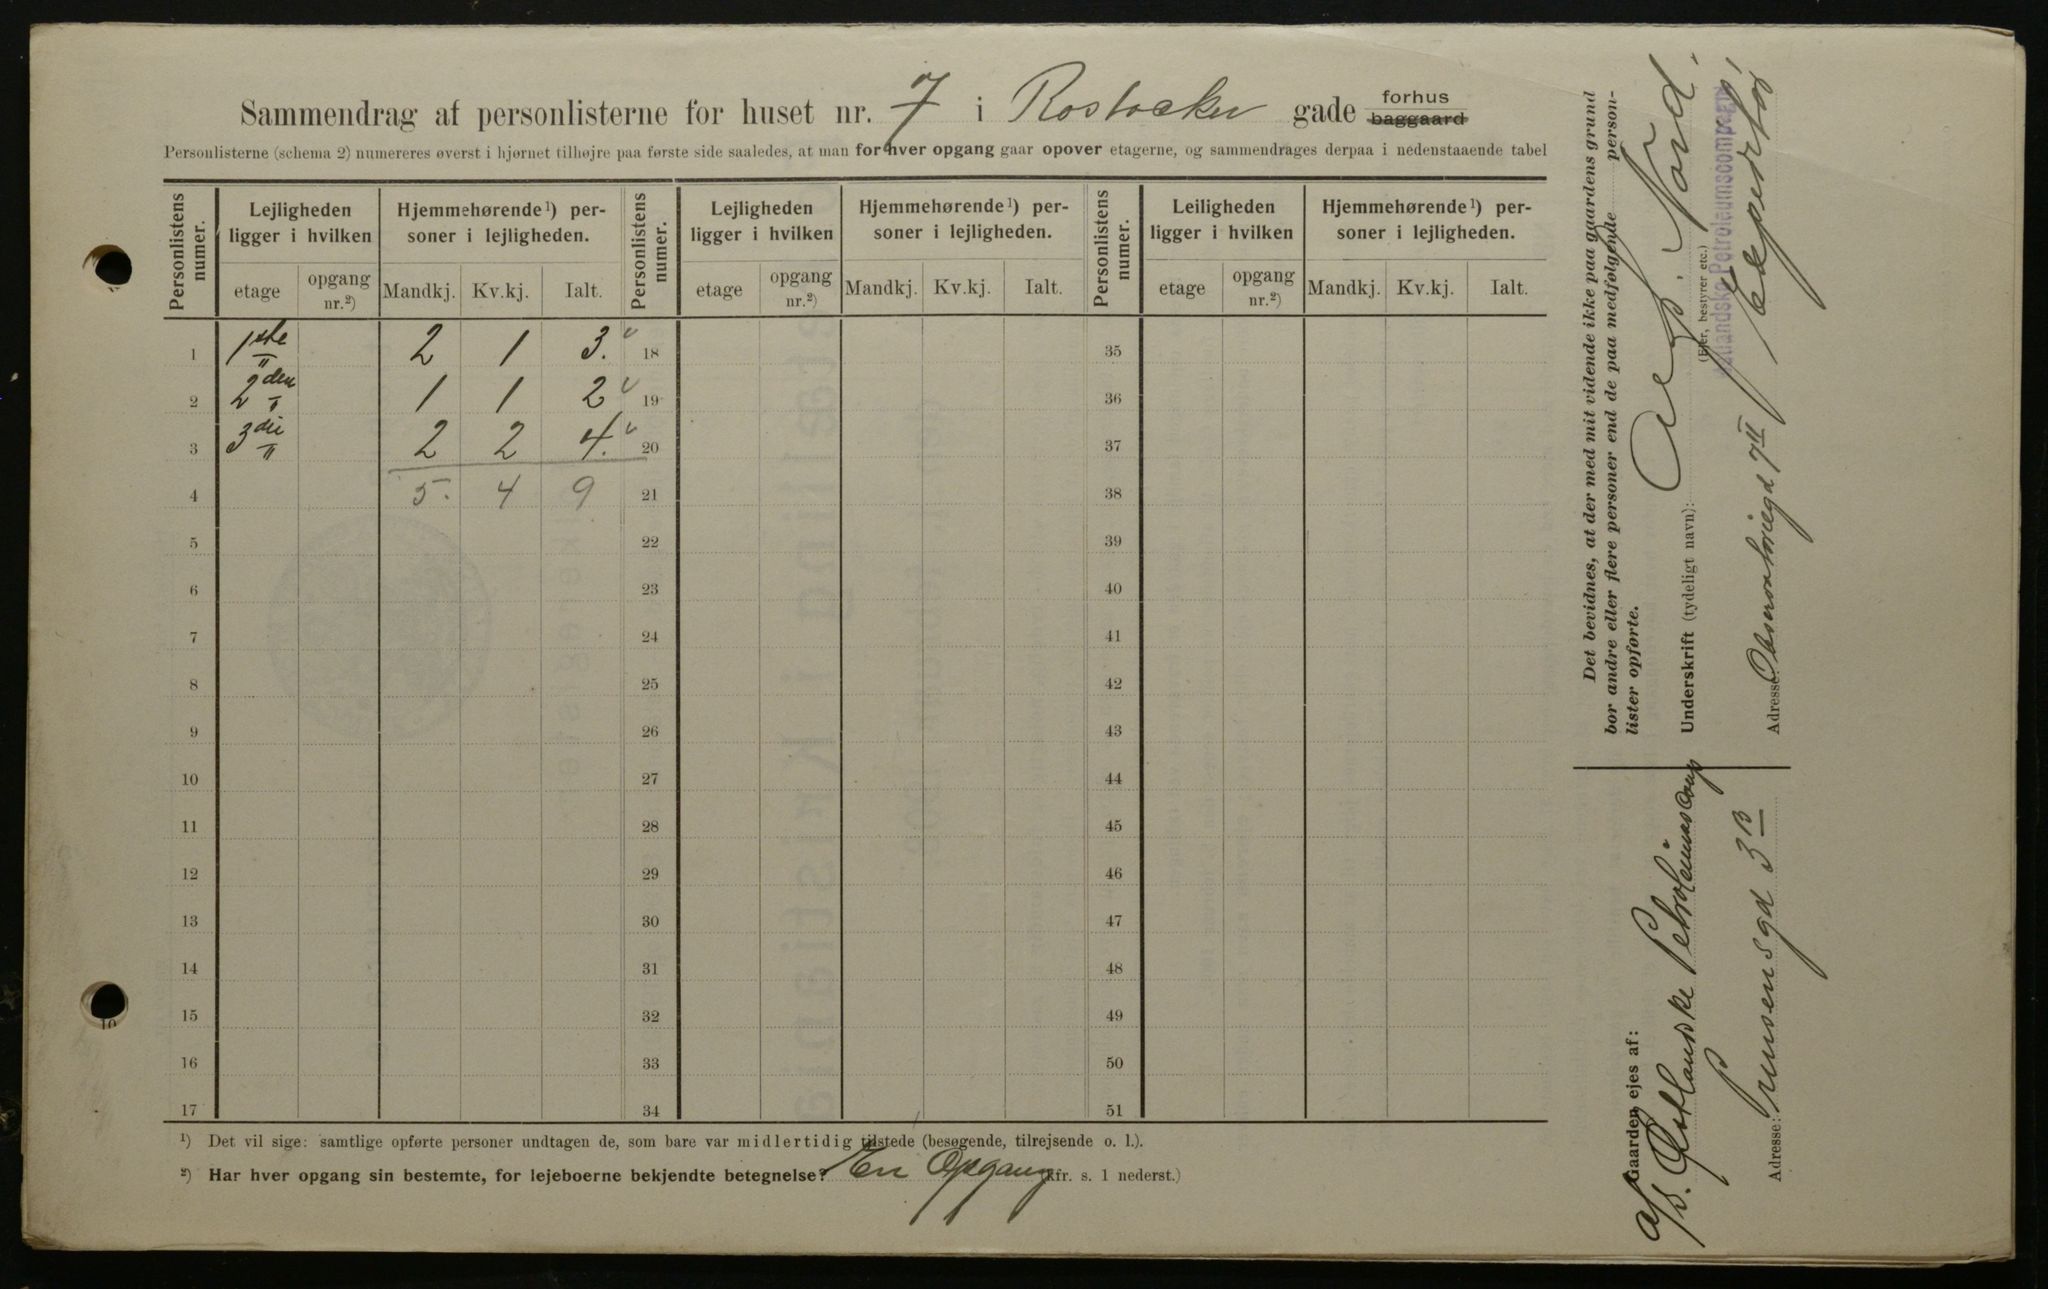 Sammendrag af personlisterne for huset nr. 7 i Rostocker gade forhus baggaard
Personlisterne (schema 2) numereres øverst i hjørnet tilhøjre paa første side saaledes, at man for hver opgang gaar opover etagerne, og sammendrages derpaa i nedenstaaende tabel
Personlistens numer. Lejligheden ligger i hvilken Hjemmehørende¹) personer i lejligheden. Personlistens numer. Lejligheden ligger i hvilken Hjemmehørende¹) personer i lejligheden. Personlistens numer. Leiligheden ligger i hvilken Hjemmehørende¹) personer i lejligheden.
etage opgang nr.²) Mandkj. Kv.kj. Ialt. etage opgang nr.²) Mandkj. Kv.kj. Ialt. etage opgang nr.²) Mandkj. Kv.kj. Ialt.
1 1ste 2 1 3. 18 35
2 2den 1 1 2 19 36
3 3die 2 2 4. 20 37
4 5. 4 9 21 38
5 22 39
6 23 40
7 24 41
8 25 42
9 26 43
10 27 44
11 28 45
12 29 46
13 30 47
14 31 48
15 32 49
16 33 50
17 34 51
¹) Det vil sige: samtlige opførte personer undtagen de, som bare var midlertidig tilstede (besøgende, tilrejsende o. l.).
²) Har hver opgang sin bestemte, for lejeboerne bekjendte betegnelse? En Opgang (kfr. s. 1 nederst.)
Det bevidnes, at der med mit vidende ikke paa gaardens grund
bor andre eller flere personer end de paa medfølgende person-
lister opførte.
Underskrift (tydeligt navn): Aug. Nord.
(Ejer, bestyrer etc.)
Østlandske Petroleumscompagni
Adresse: Observatoriegd 7 II
Gaarden ejes af:
A/S. Østlandske Petroleumscomp
Adresse: Prinsensgd 3 B